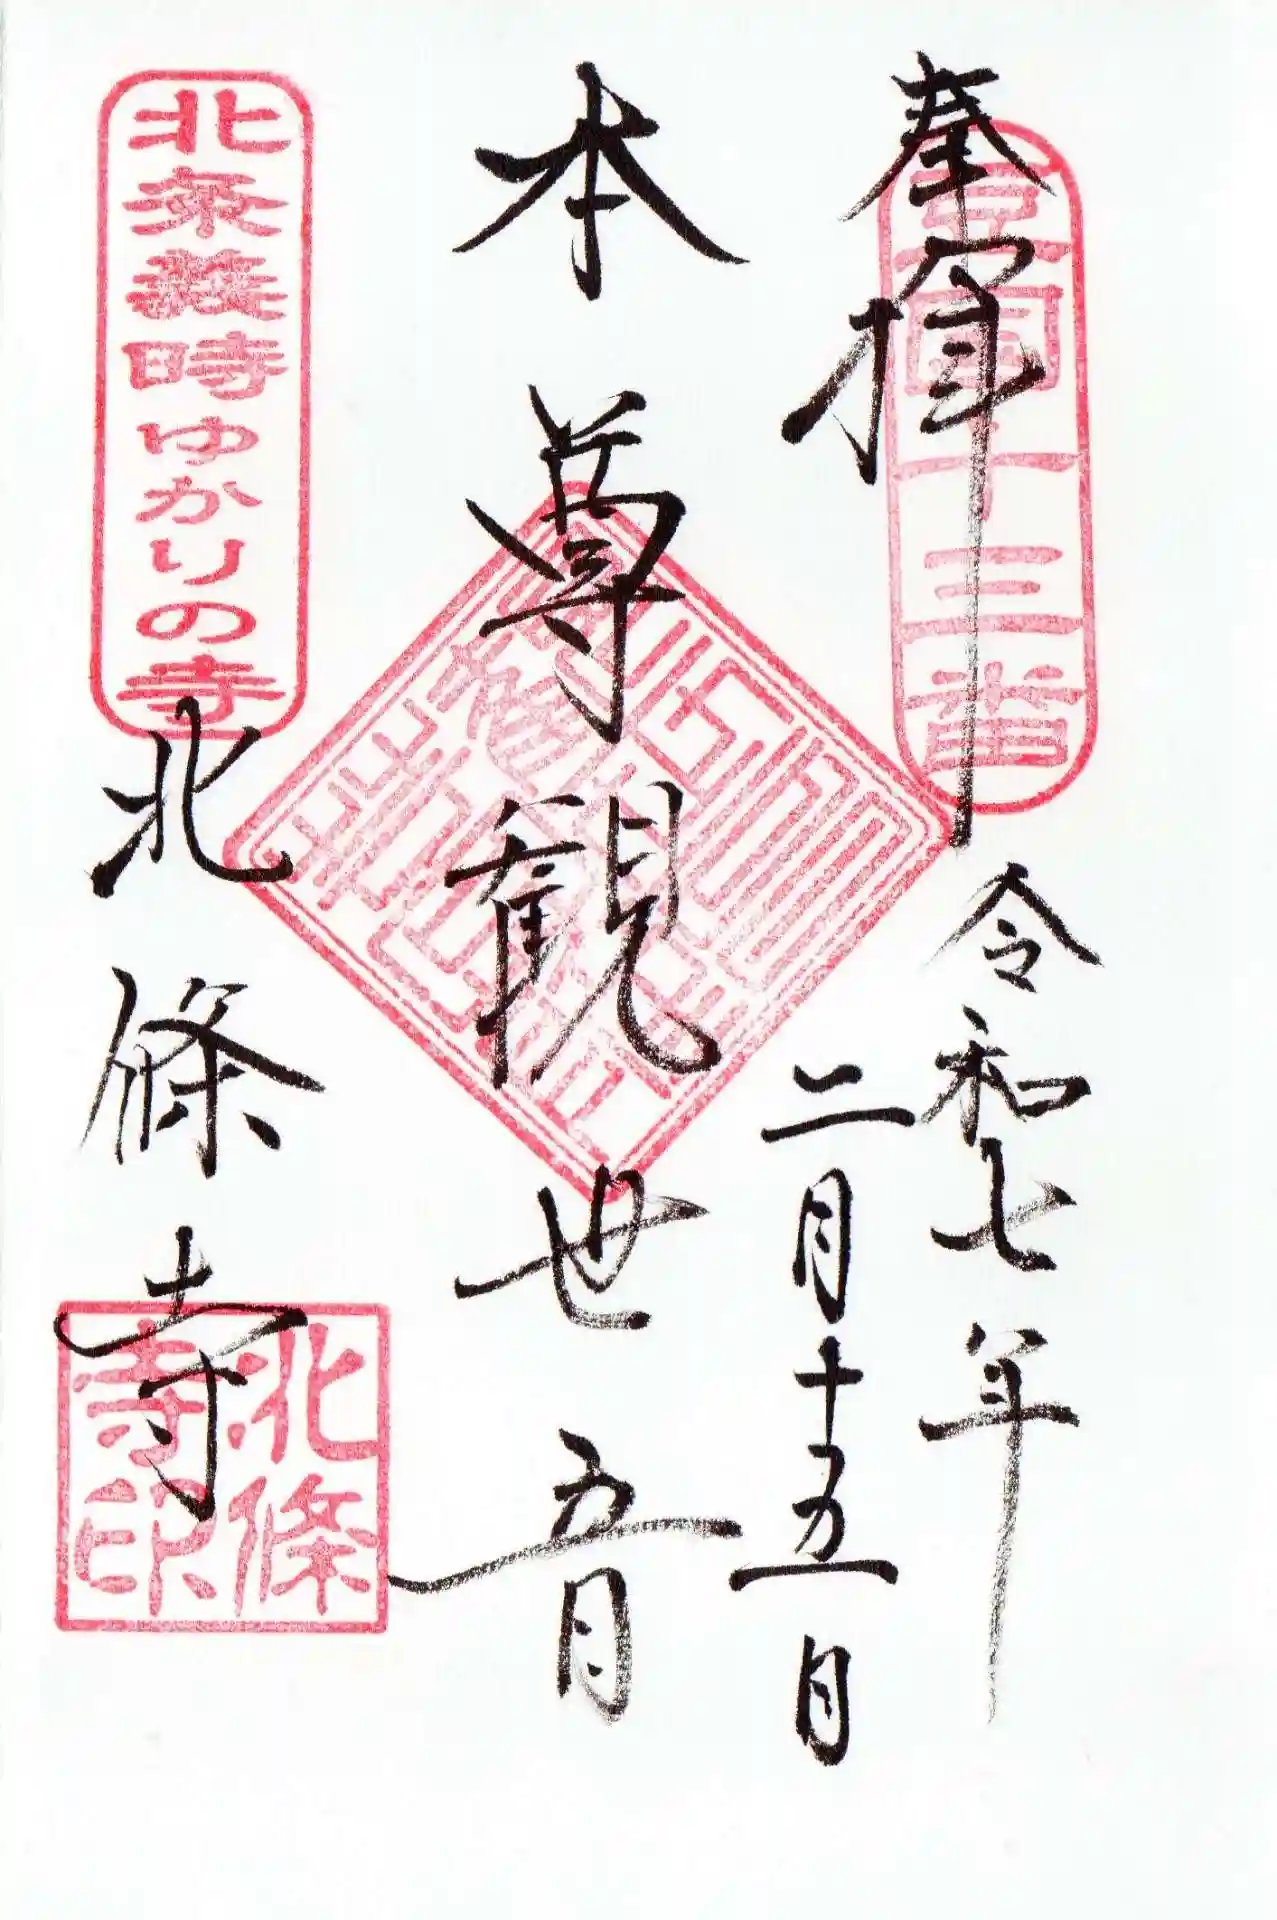 奉拝
豆国十三番
令和七年
二月十五日
本尊観世音
北条義時ゆかりの寺
北條寺
北條
寺印